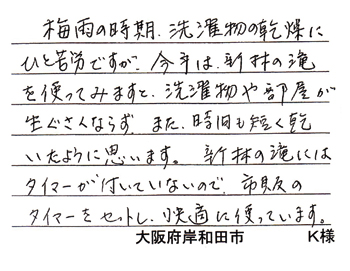 梅雨の時期、洗濯物の乾燥に
ひと苦労ですが、今年は、新林の滝
を使ってみますと、洗濯物や部屋が
生ぐさくならず、また、時间も短く乾
いたように思います。新林の滝には
タイマーが付いていないので、市販の
タイマーをセットし、快適に使っています。
大阪府岸和田市 K様